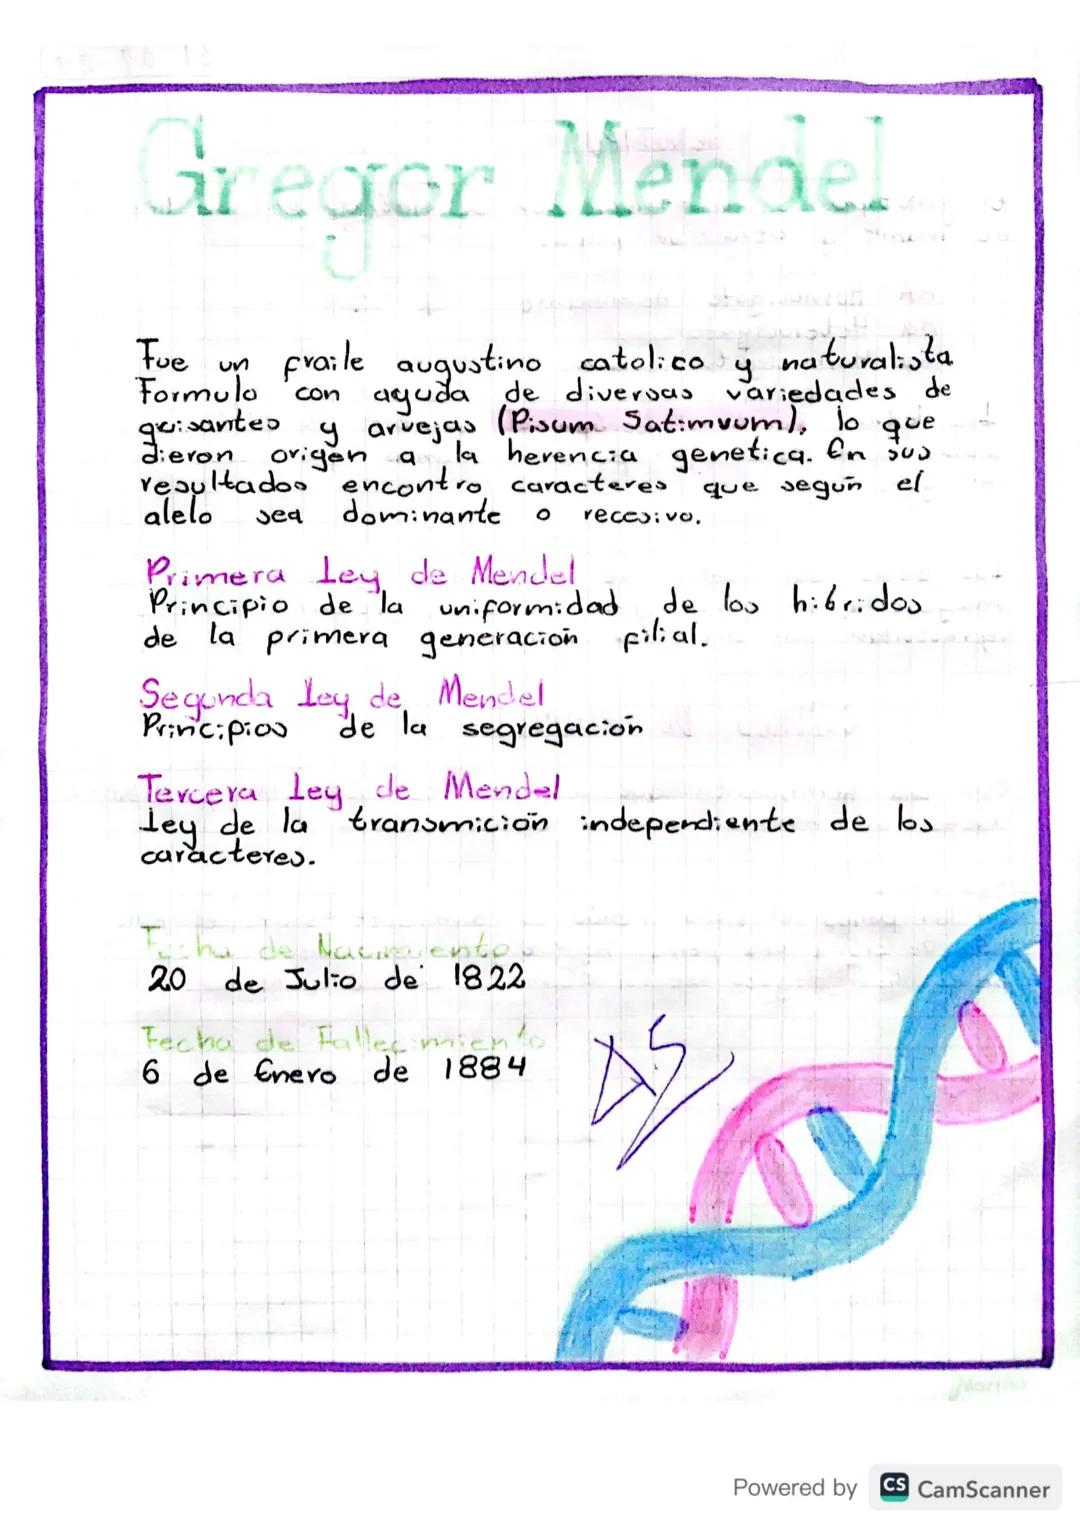 Gregor Mendel
Fue un fraile augustino catolico y naturalista
Formulo con aguda de diversas variedades de
guisantes y arvejas (Pisum Satimvum), lo que
dieron origen a la herencia genetica. En sus
resultados encontro caracteres que según el
alelo sea dominante o recesivo.
Primera Ley de Mendel
Principio de la uniformidad de los hibridos
de la primera generación filial.
Segunda Ley de Mendel
Principios de la segregación
Tercera Ley de Mendel
Ley de la transmición independiente de los
caracteres.
Fecha de Nacimiento
20 de Julio de 1822
Fecha de Fallecimiento
6 de Enero de 1884
Powered by CS CamScanner